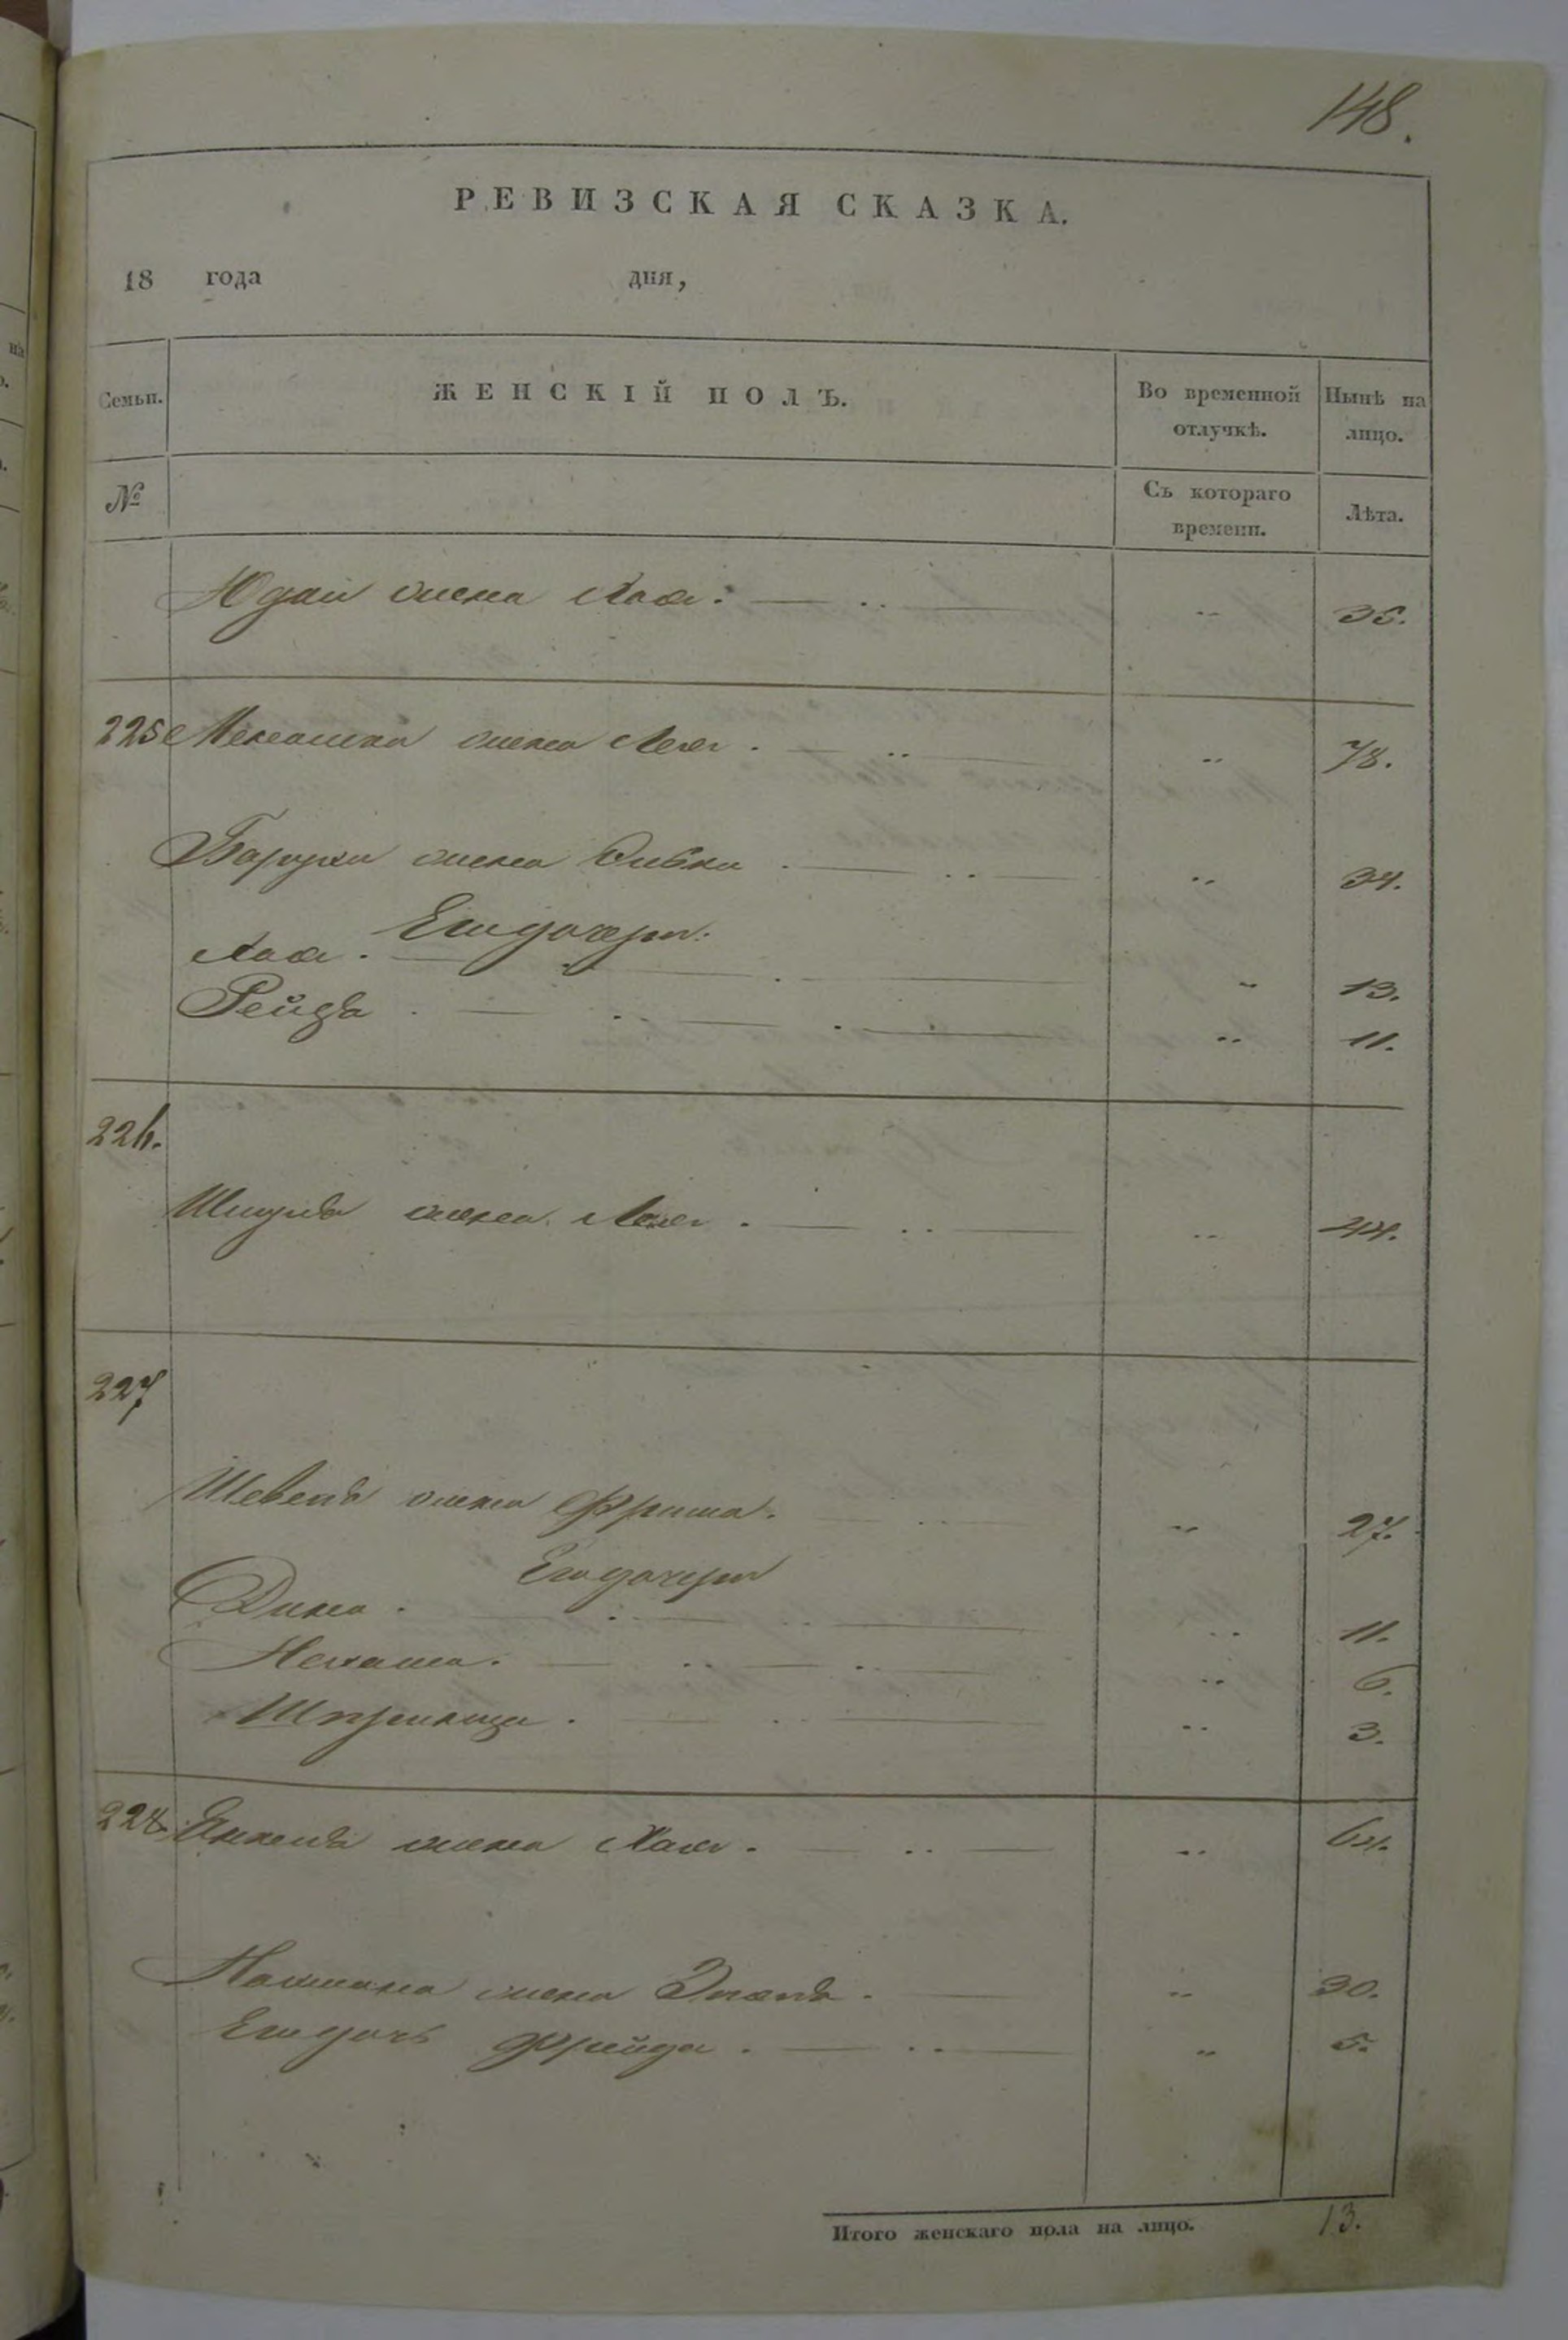 148.
РЕВИЗСКАЯ СКАЗКА.
18 года дня,
Семьи. ЖЕНСКІЙ ПОЛЪ. Во временной отлучкѣ. Нынѣ на лицо.
№ Съ котораго времени. Лѣта.
Юдки жена Хая. " 35.
225 жена Лея. " 78.
Баруха жена Сивка " 34.
Его дочери.
Хая. " 13.
Рейза " 11.
226.
жена Лея. " 44.
227
жена Фрума. " 27.
Его дочери
Дина. " 11.
Нехама. " 6.
Шпринца. " 3.
228 Янкеля жена Хая. " 64.
Нохмана жена " 30.
Его дочь Фрейда. " 5.
Итого женскаго пола на лицо. 13.